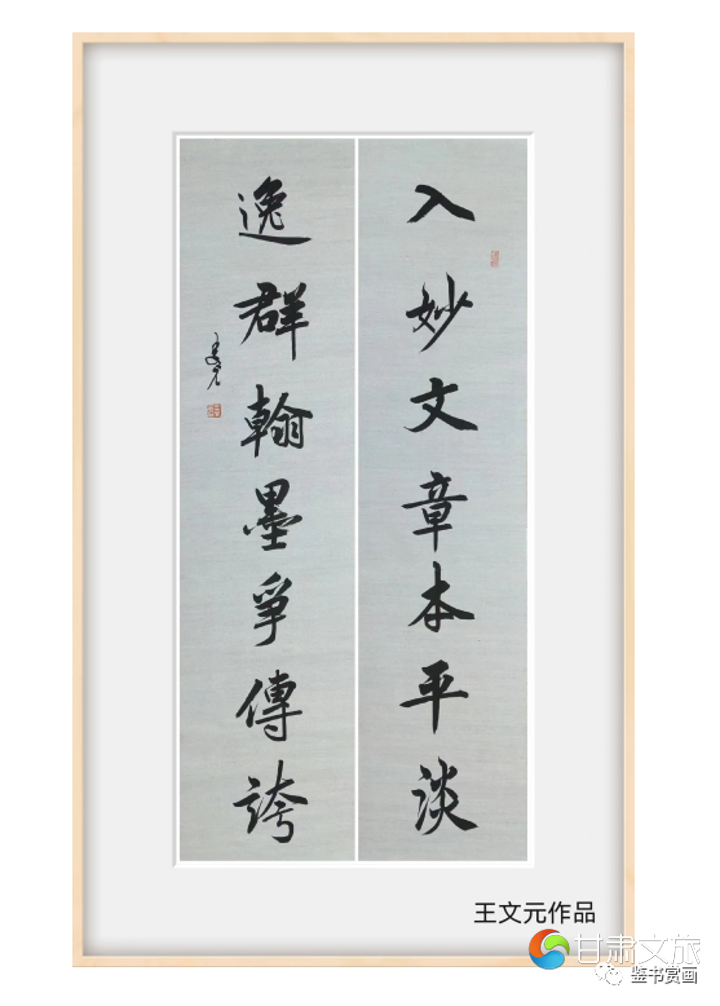 入妙文章本平淡
逸群翰墨爭傳誇
王文元作品
甘肃文旅
鉴书赏画